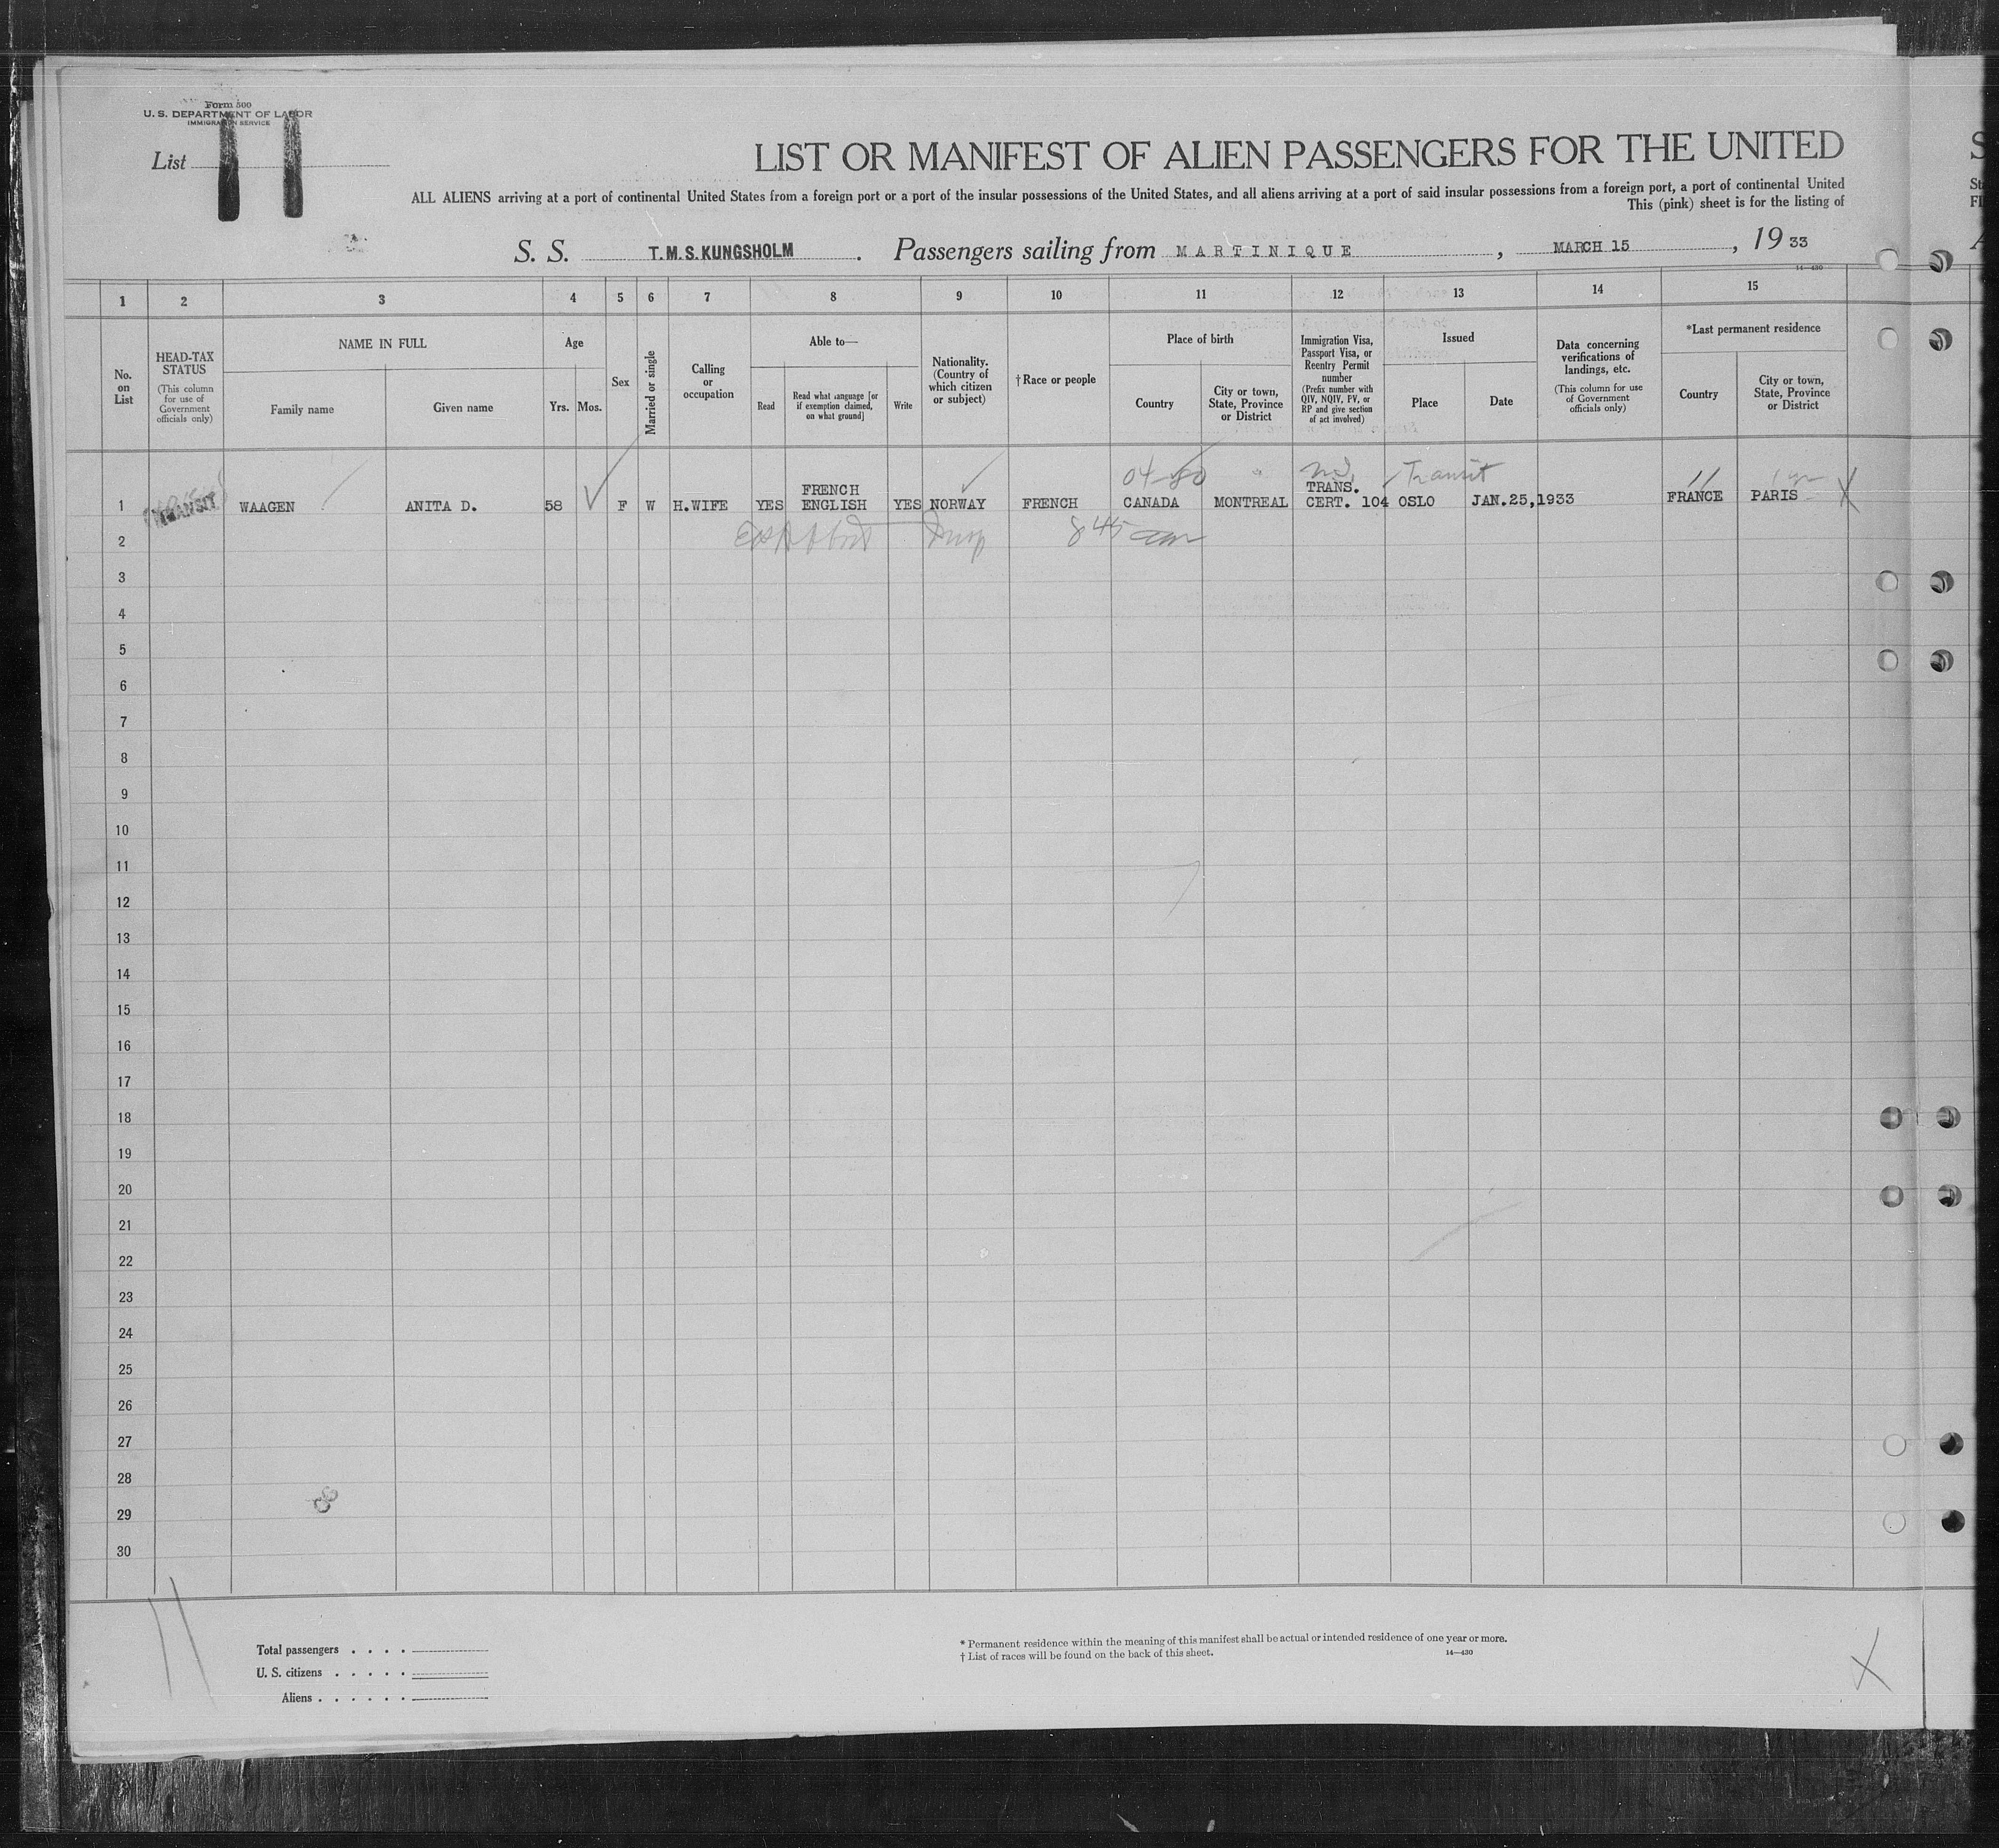 Form 500
U. S. DEPARTMENT OF LABOR
IMMIGRATION SERVICE
List 11
LIST OR MANIFEST OF ALIEN PASSENGERS FOR THE UNITED
ALL ALIENS arriving at a port of continental United States from a foreign port or a port of the insular possessions of the United States, and all aliens arriving at a port of said insular possessions from a foreign port, a port of continental United
This (pink) sheet is for the listing of
S. S. T.M.S.KUNGSHOLM. Passengers sailing from MARTINIQUE, MARCH 15, 19 33
14—430
1 2 3 4 5 6 7 8 9 10 11 12 13 14 15
No. on List
HEAD-TAX STATUS
(This column for use of Government officials only)
NAME IN FULL
Family name
Given name
Age
Yrs.
Mos.
Sex
Married or single
Calling or occupation
Able to—
Read
Read what language [or if exemption claimed, on what ground]
Write
Nationality. (Country of which citizen or subject)
† Race or people
Place of birth
Country
City or town, State, Province or District
Immigration Visa, Passport Visa, or Reentry Permit number
(Prefix number with QIV, NQIV, PV, or RP and give section of act involved)
Issued
Place
Date
Data concerning verifications of landings, etc.
(This column for use of Government officials only)
*Last permanent residence
Country
City or town, State, Province or District
Transit
1 TRANSIT WAAGEN ANITA D. 58 F W H.WIFE YES FRENCH ENGLISH YES NORWAY FRENCH CANADA MONTREAL TRANS. CERT. 104 OSLO JAN.25,1933 FRANCE PARIS
2 8 45 am
3
4
5
6
7
8
9
10
11
12
13
14
15
16
17
18
19
20
21
22
23
24
25
26
27
28
29
30
Total passengers . . . .
U. S. citizens . . . . .
Aliens . . . . . .
* Permanent residence within the meaning of this manifest shall be actual or intended residence of one year or more.
† List of races will be found on the back of this sheet.
14—430